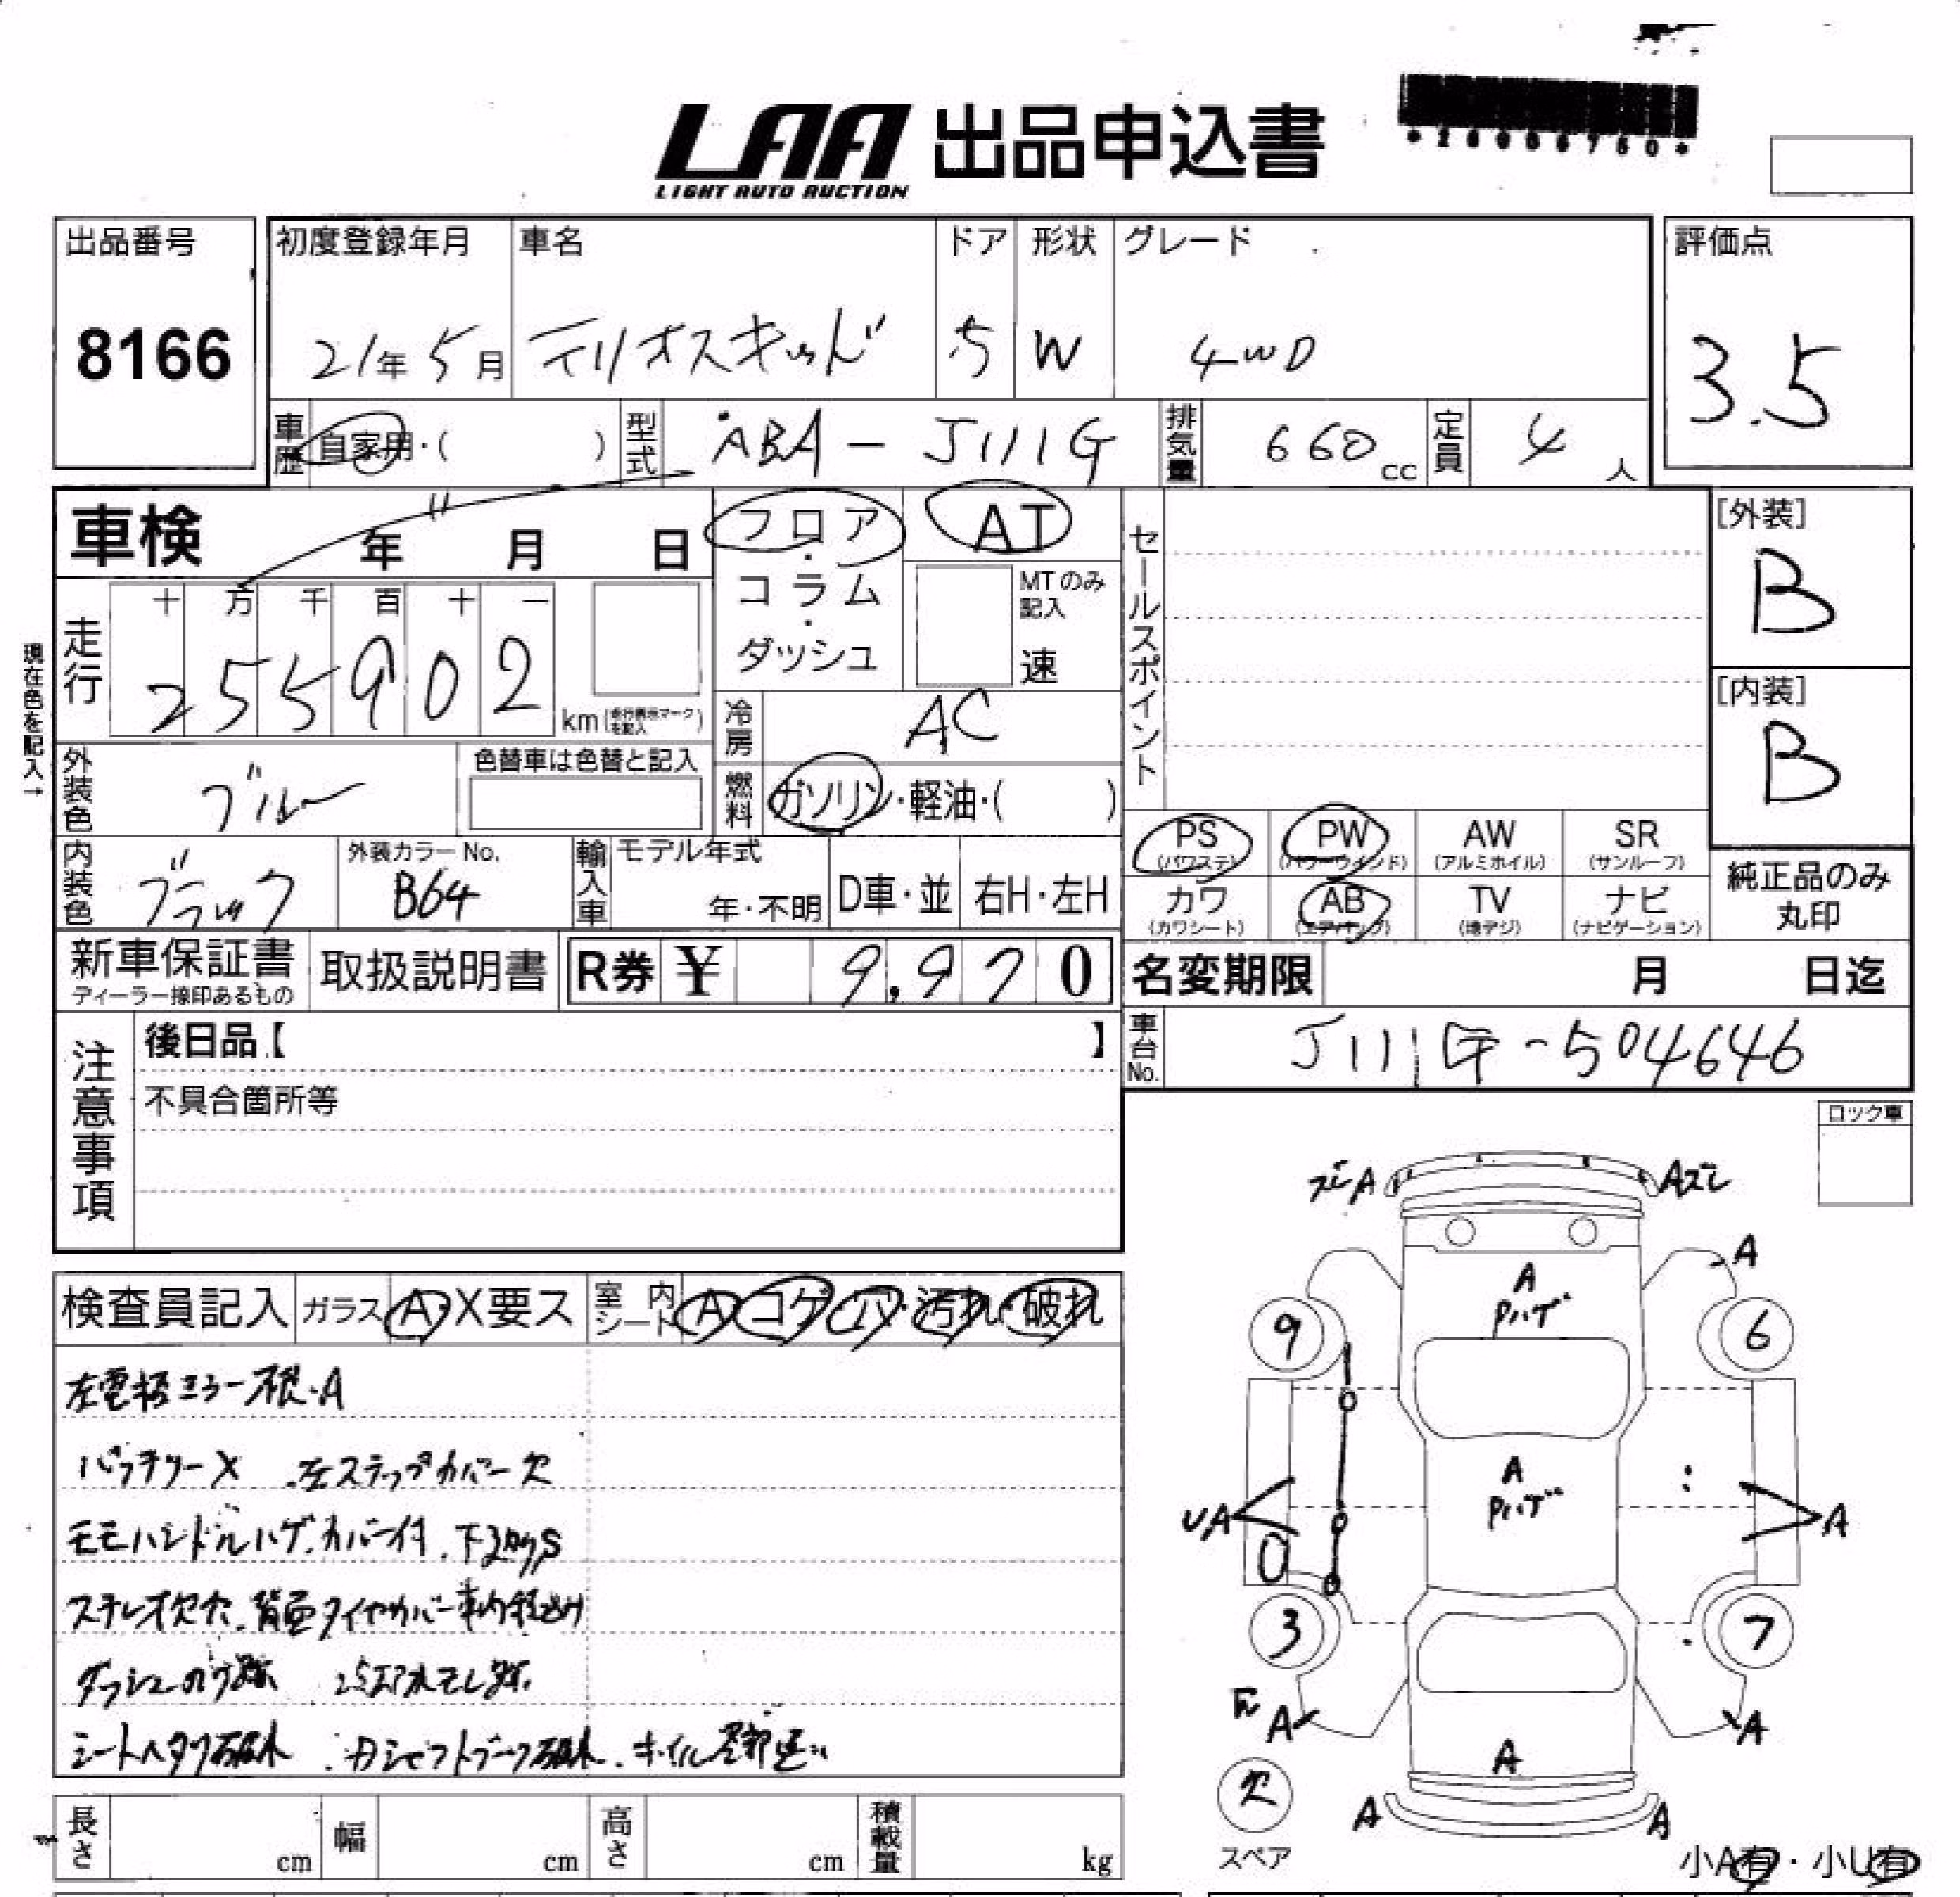 LAA 出品申込書
LIGHT AUTO AUCTION
出品番号 初度登録年月 車名 ドア 形状 グレード 評価点
8166 21年 5月 テリオスキッド 5 W 4WD 3.5
車歴 自家用・( ) 型式 ABA-J111G 排気量 660cc 定員 4人
車検 年 月 日 フロア・コラム・ダッシュ AT
MTのみ記入 速
セールスポイント
[外装] B
[内装] B
現在色を記入→
走行 十 万 千 百 十 一
255902 km (走行表示マークを記入)
冷房 AC
外装色 ブルー 色替車は色替と記入
燃料 ガソリン・軽油・( )
内装色 ブラック 外装カラーNo. B64 輸入車 モデル年式 年・不明 D車・並 右H・左H
PS (パワステ) PW (パワーウインド) AW (アルミホイル) SR (サンルーフ)
カワ (カワシート) AB (エアバッグ) TV (地デジ) ナビ (ナビゲーション)
純正品のみ丸印
新車保証書 ディーラー捺印あるもの 取扱説明書 R券 ¥ 9,970
名変期限 月 日迄
車台No. J111G-504646
注意事項
後日品【 】
不具合箇所等
ロック車
検査員記入 ガラス A・X要ス 室内シート A コゲ 汚れ・破れ
左電格ミラー不良・A
バッテリーX 左ステップカバー欠
モモハンドルハゲ カバー付 下廻りS
ステレオ欠 背面タイヤカバー車内積込み
ダッシュのり跡
シートヘタリ破れ シフトブーツ破れ
ズレA Aズレ
A
A
Pハゲ
9 6
A
Pハゲ
UA A
3 7
A A
A
欠
スペア
A A
小A有・小U有
長さ cm 幅 cm 高さ cm 積載量 kg